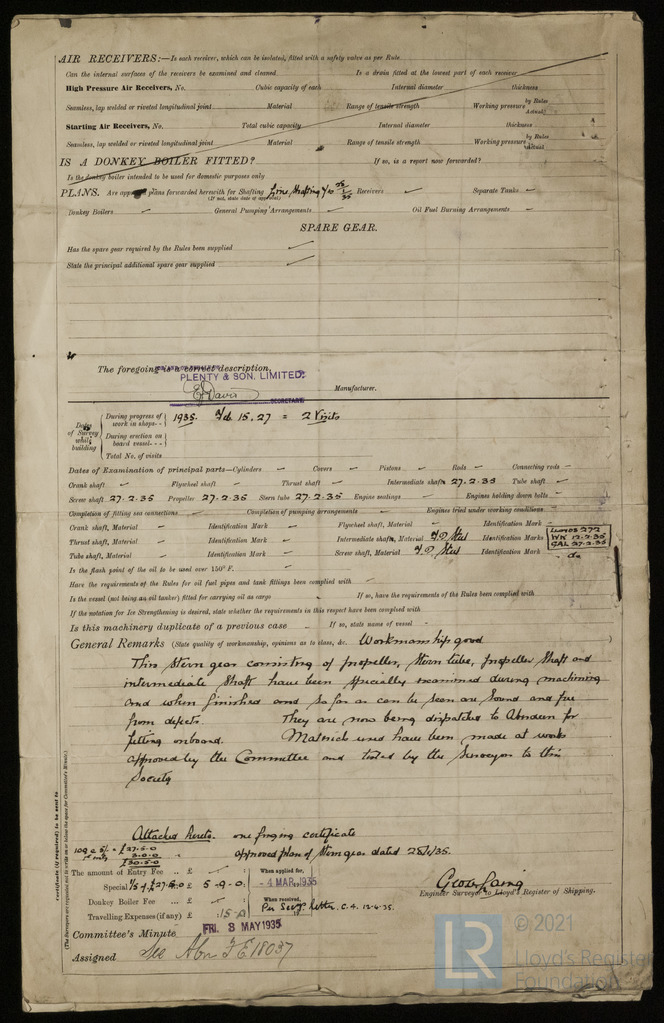 AIR RECEIVERS:—Is each receiver, which can be isolated, fitted with a safety valve as per Rule
Can the internal surfaces of the receivers be examined and cleaned Is a drain fitted at the lowest part of each receiver
High Pressure Air Receivers, No. Cubic capacity of each Internal diameter thickness
Seamless, lap welded or riveted longitudinal joint Material Range of tensile strength Working pressure by Rules Actual
Starting Air Receivers, No. Total cubic capacity Internal diameter thickness
Seamless, lap welded or riveted longitudinal joint Material Range of tensile strength Working pressure by Rules Actual
IS A DONKEY BOILER FITTED? If so, is a report now forwarded?
Is the donkey boiler intended to be used for domestic purposes only
PLANS. Are approved plans forwarded herewith for Shafting Line Shafting Receivers Separate Tanks
(If not, state date of approval)
Donkey Boilers General Pumping Arrangements Oil Fuel Burning Arrangements
SPARE GEAR.
Has the spare gear required by the Rules been supplied
State the principal additional spare gear supplied
The foregoing is a correct description,
PLENTY & SON, LIMITED.
Manufacturer.
SECRETARY
Dates of Survey while building
During progress of work in shops - - 1935. Feb. 15, 27 = 2 Visits
During erection on board vessel - - -
Total No. of visits
Dates of Examination of principal parts—Cylinders Covers Pistons Rods Connecting rods
Crank shaft Flywheel shaft Thrust shaft Intermediate shafts 27.2.35 Tube shaft
Screw shaft 27.2.35 Propeller 27.2.35 Stern tube 27.2.35 Engine seatings Engines holding down bolts
Completion of fitting sea connections Completion of pumping arrangements Engines tried under working conditions
Crank shaft, Material Identification Mark Flywheel shaft, Material Identification Mark
Thrust shaft, Material Identification Mark Intermediate shafts, Material Steel Identification Marks LLOYDS 272 WK 12-2-35 GAL 27-2-35
Tube shaft, Material Identification Mark Screw shaft, Material Steel Identification Mark do
Is the flash point of the oil to be used over 150° F.
Have the requirements of the Rules for oil fuel pipes and tank fittings been complied with
Is the vessel (not being an oil tanker) fitted for carrying oil as cargo If so, have the requirements of the Rules been complied with
If the notation for Ice Strengthening is desired, state whether the requirements in this respect have been complied with
Is this machinery duplicate of a previous case If so, state name of vessel
General Remarks (State quality of workmanship, opinions as to class, &c. Workmanship good )
This stern gear consisting of propeller, stern tube, propeller shaft and
intermediate shaft have been specially examined during machining
and when finished and so far as can be seen are sound and free
from defects. They are now being dispatched to Aberdeen for
fitting onboard. Materials used have been made at works
approved by the Committee and tested by the Surveyor to this
Society
Attached hereto. one forging certificate
approved plan of stern gear dated 25/1/35.
£27-5-0
3-0-0
£30-5-0
The amount of Entry Fee .. £ When applied for,
Special 1/5 of £27-5-0 £ 5-9-0. - 4 MAR 1935
Donkey Boiler Fee ... £ When received,
Travelling Expenses (if any) £ Per Secy's letter. 12-4-35.
Engineer Surveyor to Lloyd's Register of Shipping.
Committee's Minute FRI. 3 MAY 1935
Assigned See Abn F.E. 18037
Certificate (if required) to be sent to
(The Surveyors are requested not to write on or below the space for Committee's Minute.)
LR
© 2021
Lloyd's Register
Foundation